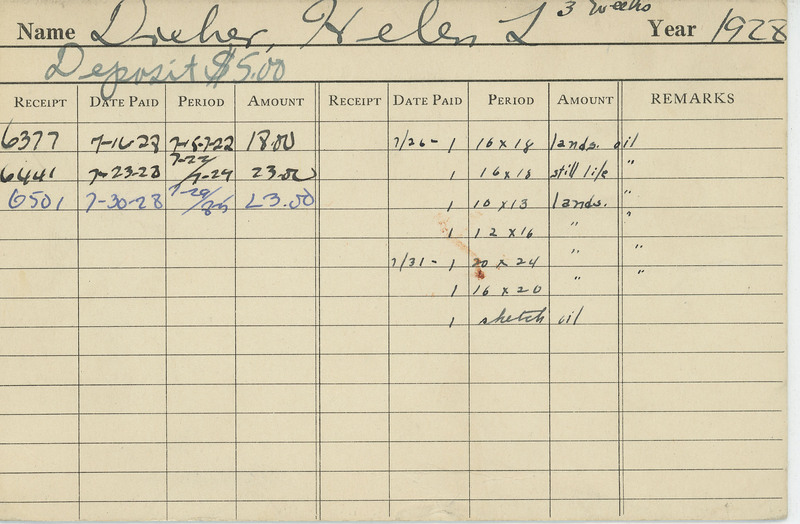 Name Dreher, Helen L 3 weeks Year 1928
Deposit $5.00
RECEIPT DATE PAID PERIOD AMOUNT RECEIPT DATE PAID PERIOD AMOUNT REMARKS
6377 7-16-28 7-15-7-22 18.00 7/26- 1 16 x 18 lands. oil
6441 7-23-28 7-22/7-29 23.00 1 16 x 18 still life "
6501 7-30-28 7-29/8-5 23.00 1 10 x 13 lands. "
1 12 x 16 " "
7/31- 1 20 x 24 " "
1 16 x 20 " "
1 sketch oil